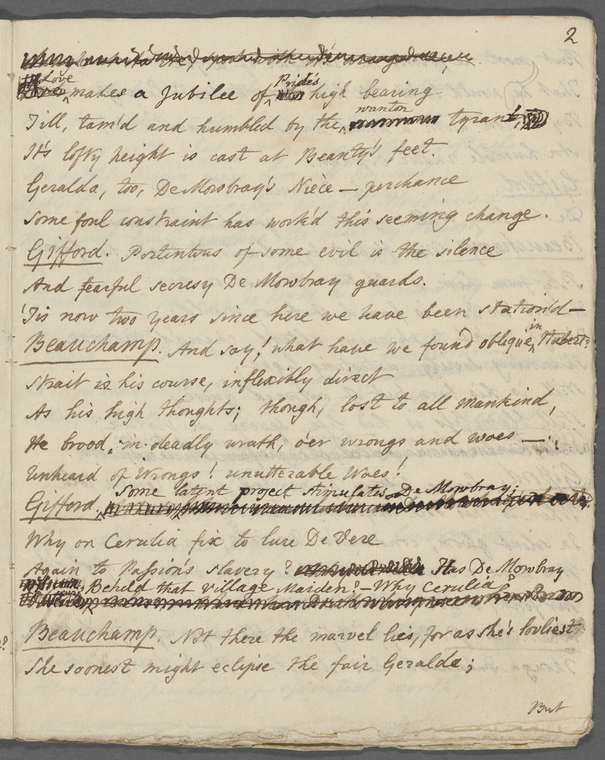 2
Love makes a Jubilee of Pride's high bearing
Till, tam'd and humbled by the wanton tyrant,
It's lofty height is cast at Beauty's feet.
Geralda, too, De Mowbray's Niece — perchance
Some foul constraint has work'd this seeming change.
Gifford. Portentous of some evil is the silence
And fearful secresy De Mowbray guards.
'Tis now two years since here we have been station'd —
Beauchamp. And say! what have we found oblique in Hubert?
Strait is his course, inflexibly direct
As his high thoughts; though, lost to all mankind,
He brood, in deadly wrath, o'er wrongs and woes —
Unheard of Wrongs! unutterable Woes!
Gifford. Some latent project stimulates De Mowbray;
Why on Cerulia fix to lure De Vere
Again to Passion's Slavery? Has De Mowbray
Beheld that village Maiden? — Why Cerulia?
Beauchamp. Not there the marvel lies, for as she's lovliest
She soonest might eclipse the fair Geralda;
But